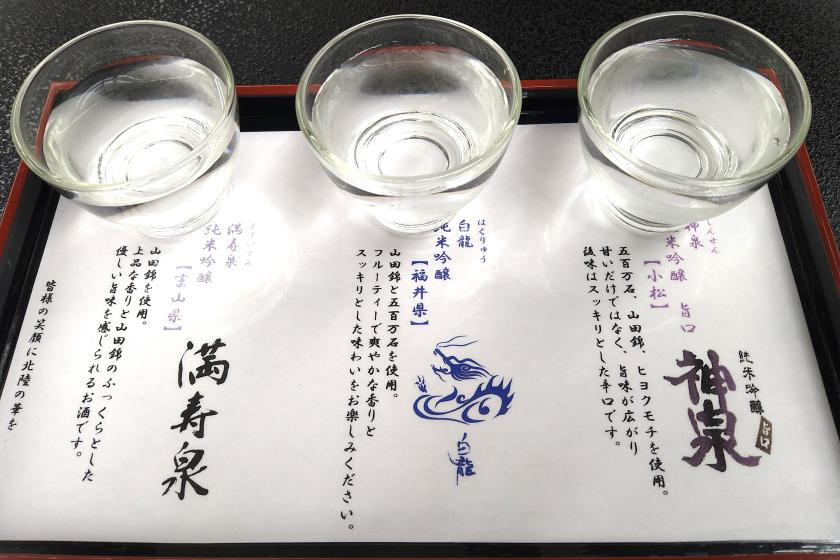 神泉
純米吟醸 旨口
【小松】
五百万石、山田錦、ヒヨクモチを使用。
甘いだけではなく、旨味が広がり
後味はスッキリとした辛口です。
純米吟醸
旨口
神泉
はくりゅう
白龍
純米吟醸
【福井県】
山田錦と五百万石を使用。
フルーティーで爽やかな香りと
スッキリとした味わいをお楽しみください。
白龍
満寿泉
純米吟醸
【富山県】
山田錦を使用。
上品な香りと山田錦のふっくらとした
優しい旨味を感じられるお酒です。
満寿泉
皆様の笑顔に北陸の華を